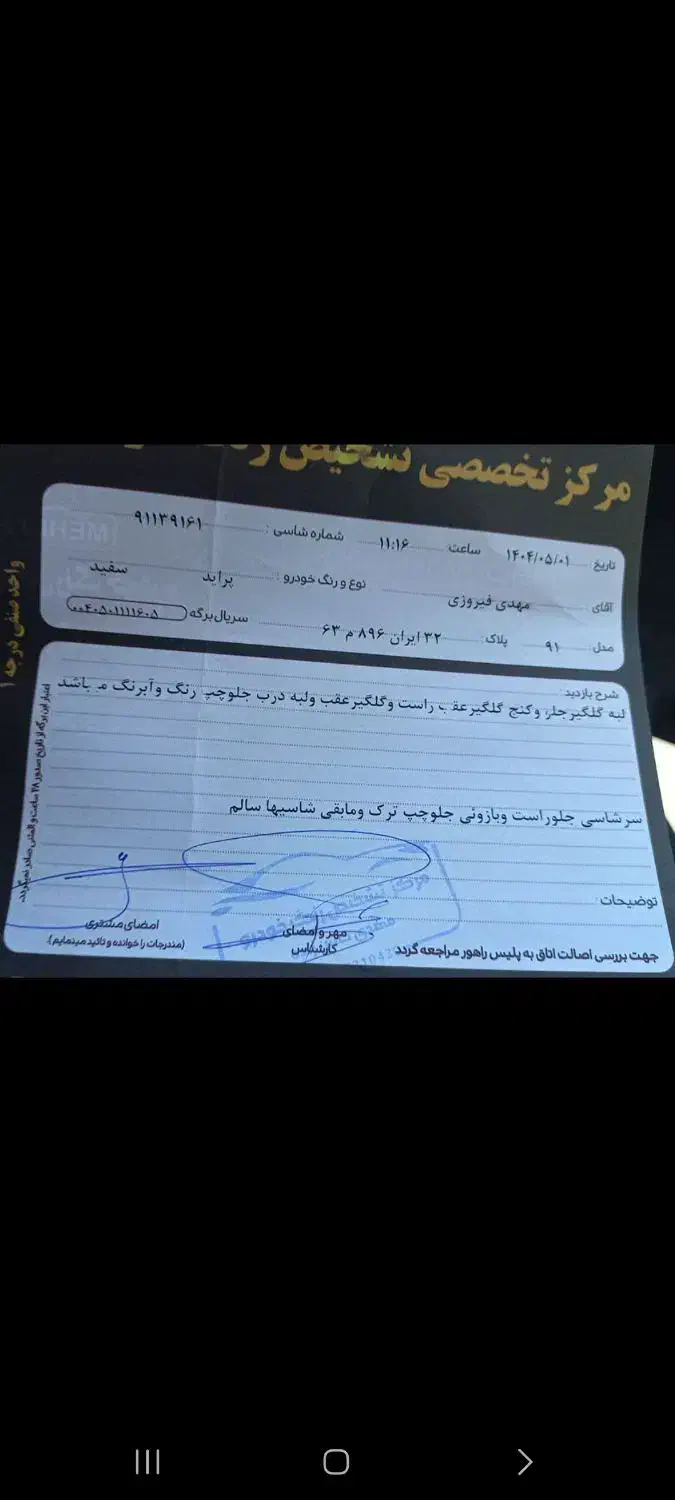 مرکز تخصصی تشخیص
تاریخ: ۱۴۰۴/۰۵/۰۱ ساعت: ۱۱:۱۶ شماره شاسی: ۹۱۱۳۹۱۶۱
آقای مهدی فیروزی نوع و رنگ خودرو: پراید سفید
مدل: ۹۱ پلاک: ۳۲ ایران ۸۹۶ م ۶۳ سریال برگه ۰۰۴۰۵۰۱۱۱۱۶۰۵
واحد صنفی درجه ۱
شرح بازدید:
لبه گلگیرجلو وکنج گلگیرعقب راست وگلگیرعقب ولبه درب جلوچپ رنگ وآبرنگ می باشد
سرشاسی جلوراست وبازوئی جلوچپ ترک ومابقی شاسیها سالم
توضیحات:
جهت بررسی اصالت اتاق به پلیس راهور مراجعه گردد
مهر و امضای
کارشناس
امضای مشتری
(مندرجات را خوانده و تائید مینمایم).
اعتبار این برگه از تاریخ صدور ۴۸ ساعت و المثنی صادر نمیگردد.